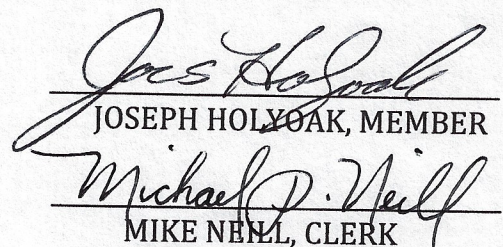 Joes Holyoak
JOSEPH HOLYOAK, MEMBER
Michael D. Neill
MIKE NEILL, CLERK